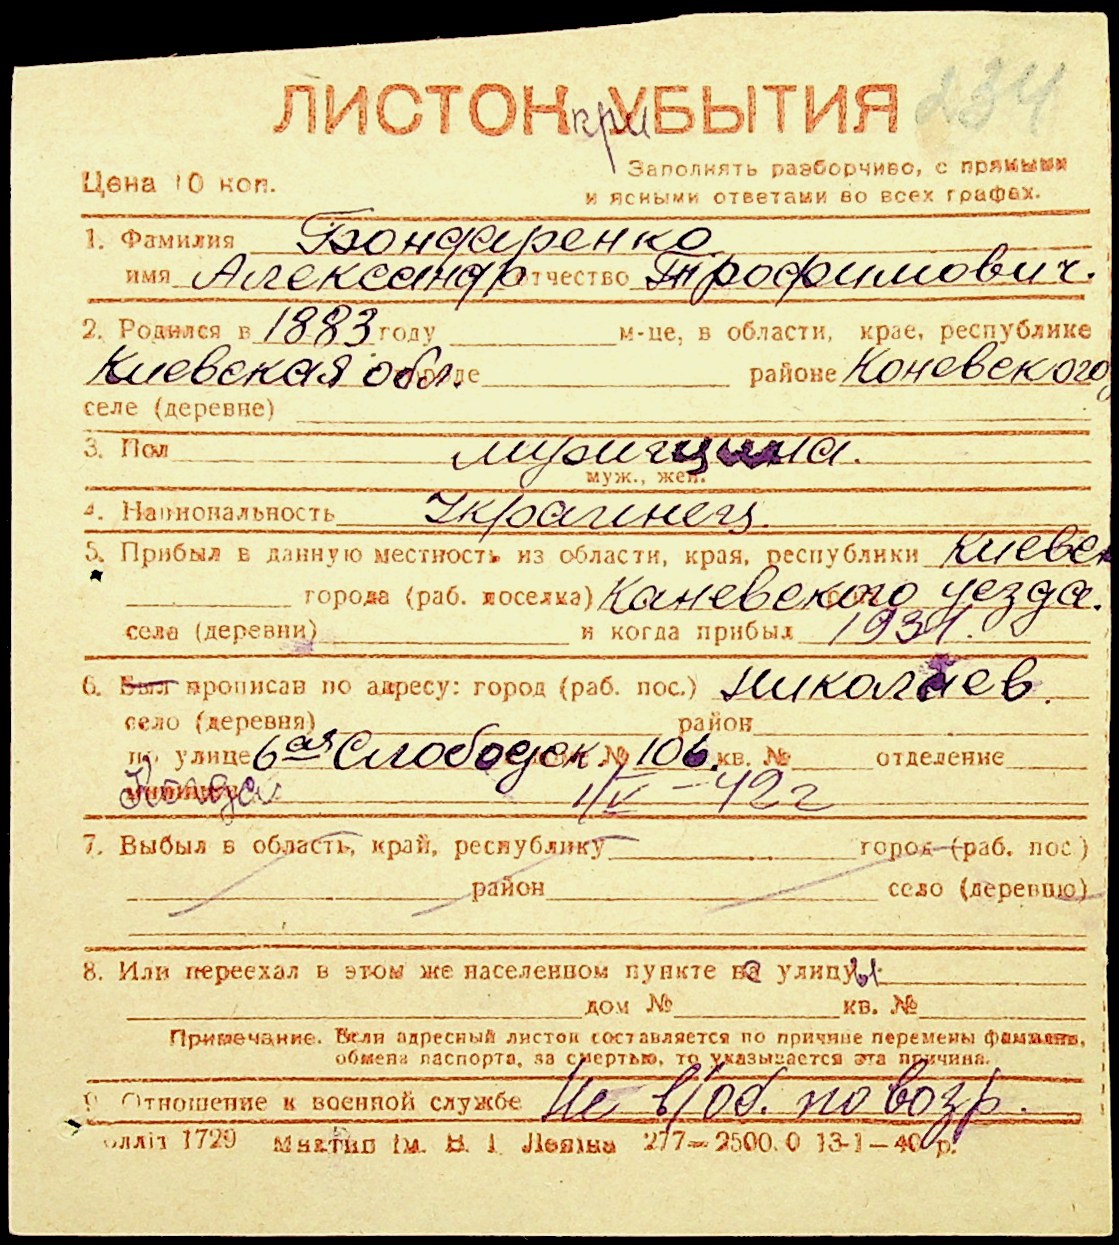 ЛИСТОК при УБЫТИЯ 234
Цена 10 коп.
Заполнять разборчиво, с прямыми
и ясными ответами во всех графах.
1. Фамилия Бондаренко
имя Александр отчество Трофимович.
2. Родился в 1883 году м-це, в области, крае, республике
Киевская обл. городе районе Коневского
селе (деревне)
3. Пол мужчина.
муж., жен.
4. Национальность Украинец.
5. Прибыл в данную местность из области, края, республики Киевск
города (раб. поселка) Каневского уезда.
села (деревни) и когда прибыл 1931.
6. Был прописан по адресу: город (раб. пос.) Николаев.
село (деревня) район
по улице 6ая Слободск. № 106. кв. № отделение
милиции Когда 1/IV-42 г
7. Выбыл в область, край, республику город (раб. пос.)
район село (деревню)
8. Или переехал в этом же населенном пункте на улицу
дом № кв. №
Примечание. Если адресный листок составляется по причине перемены фамилии,
обмена паспорта, за смертью, то указывается эта причина.
9. Отношение к военной службе Не в/об. по возр.
оллiт 1729 Миктип Iм. В. I. Ленiна 277—2500.0 13-1-40 р.